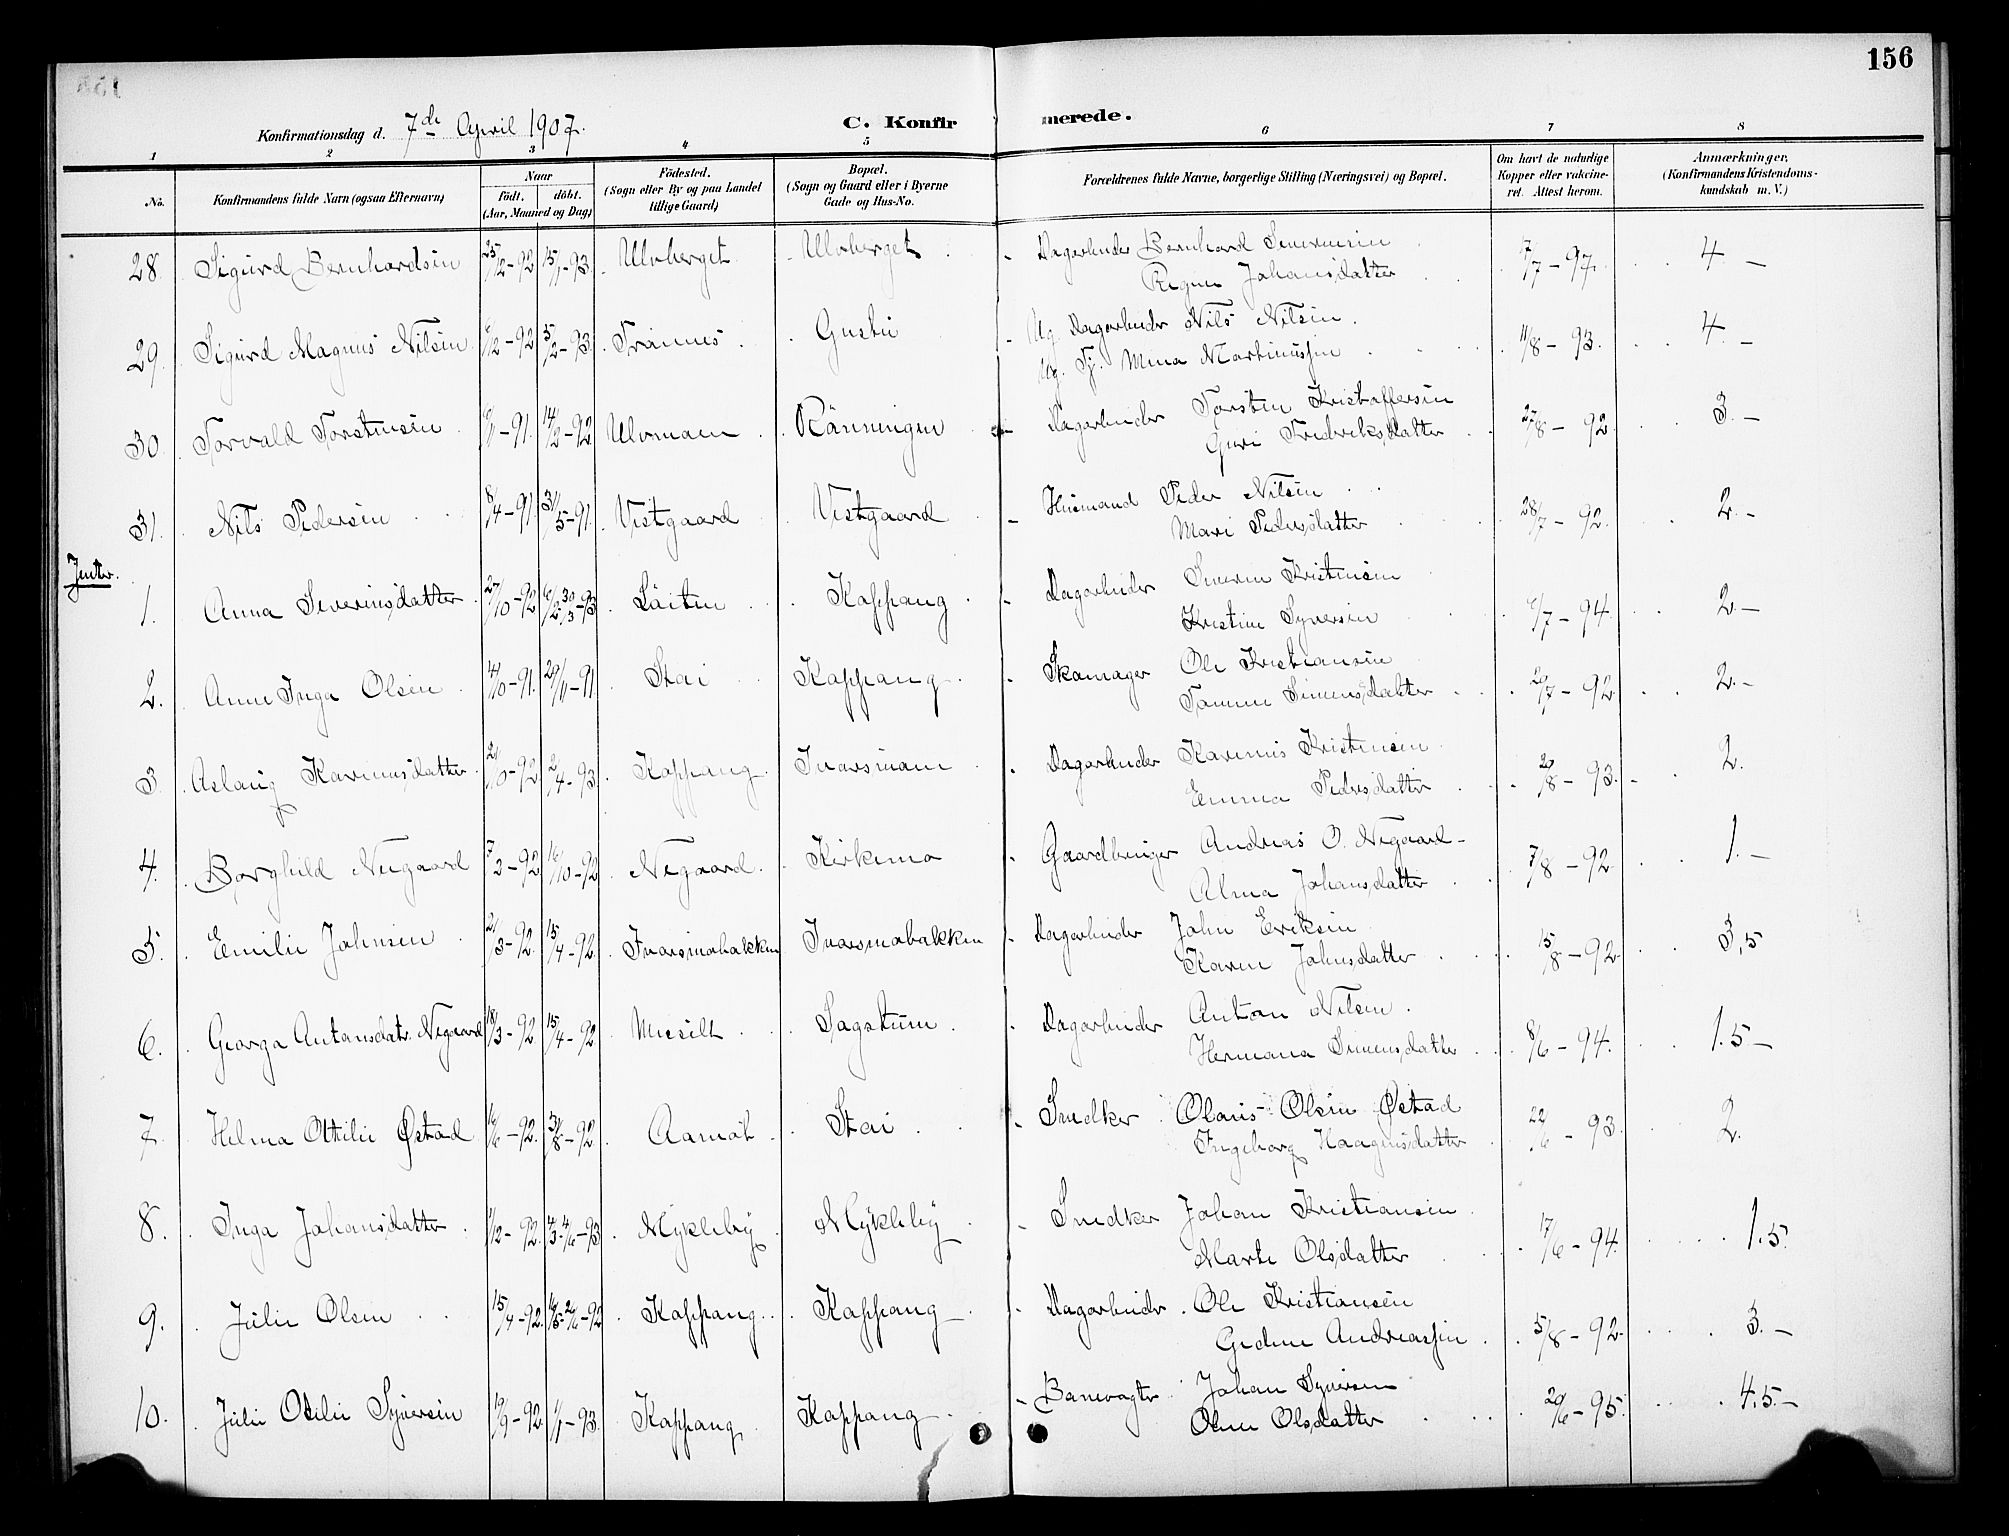 156
Konfirmationsdag d. 7de April 1907.
C. Konfirmerede.
1 2 3 4 5 6 7 8
No.
Konfirmandens fulde Navn (ogsaa Efternavn)
Naar
födt. döbt.
(Aar, Maaned og Dag)
Födested.
(Sogn eller By og paa Landet
tillige Gaard)
Bopæl.
(Sogn og Gaard eller i Byerne
Gade og Hus-No.
Forældrenes fulde Navne, borgerlige Stilling (Næringsvei) og Bopæl.
Om havt de naturlige
Kopper eller vakcine-
ret. Attest herom.
Anmærkninger,
(Konfirmandens Kristendoms-
kundskab m. V.)
28. Sigurd Bernhardsen 25/12-92 15/1-93. Ulvberget Ulvberget Dagarbeider Bernhard Simensen 17/7-97. 4 -
Regine Johansdatter
29. Sigurd Magnus Nilsen 6/12-92 5/2-93. Trønnes Ug. Dagarbeider Nils Nilsen. 11/8-93. 4. -
Ug. Tj. Mina Martinussen
30. Torvald Torstensen 14/2-92 Ulvmoen Rønningen Dagarbeider Torsten Kristoffersen 27/8-92. 3. -
Guri Fredriksdatter
31. Nils Pedersen 8/4-91. 31/5-91. Vestgaard Vestgaard Husmand Peder Nilsen 28/7-92. 2. -
Mari Pedersdatter
Jenter.
1. Anna Severinsdatter 27/10-92 Løiten Koppang Dagarbeider Severin Kristensen 6/7-94. 2. -
Kristine Syversen
2. Anne Inga Olsen 4/10-91. 29/11-91. Stai Koppang Skomager Ole Kristiansen 20/7-92. 2. -
Simensdatter
3. Aslaug Karinusdatter 21/10-92 2/4-93. Koppang Ivarsmoen Dagarbeider Karinus Kristensen 20/8-93. 2.
Emma Pedersdatter
4. Borghild Negaard 7/2-92 16/10-92 Negaard Kirkemo Gaardbruger Andreas O. Negaard 7/8-92. 1. -
Alma Johansdatter
5. Emilie Johnsen 21/3-92. 15/4-92. Ivarsmobakken Ivarsmobakken Dagarbeider John Eriksen 15/8-92. 3,5
Karen Johnsdatter
6. Georga Antonsdatr. Negaard 18/3-92. 15/4-92. Messelt Sagstuen Dagarbeider Anton Nilsen. 8/6-94. 1.5 -
Hermana Simensdatter
7. Helma Otilie Østad 16/6-92. 31/8-92. Aamot Stai Snedker Olaus Olsen Østad 22/6-93. 2.
Ingeborg Haagensdatter
8. Inga Johansdatter 1/12-92. 4/3-4/6-93 Mykleby Mykleby Snedker Johan Kristiansen 17/6-94. 1.5.
Marte Olsdatter
9. Julie Olsen 15/4-92. 16/5-26/6-92 Koppang Koppang Dagarbeider Ole Kristiansen 5/8-92. 3. -
Gedine Andreassen
10. Julie Otilie Syversen 19/9-92. 1/1-93. Koppang Koppang Banevogter Johan Syversen 20/6-95. 4,5. -
Oline Olsdatter